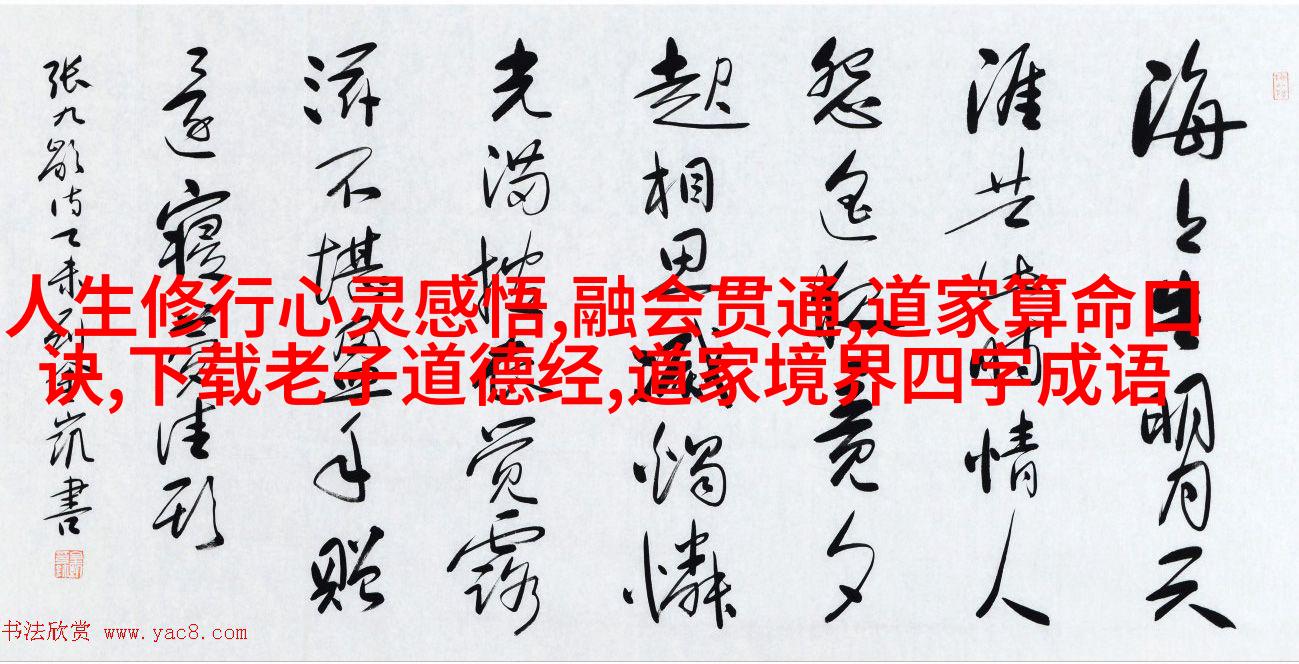 人生修行心灵感悟,融会贯通,道家算命口
诀,下载老子道德经,道家境界四字成语
海上生明月天
涯共此时情人
怨遥夜竟夕
起相思滅燭憐
光满披衣觉露
滋不堪盈手赠
还寝梦佳期
张九龄诗乙未凯書
书法欣赏 www.yac8.com